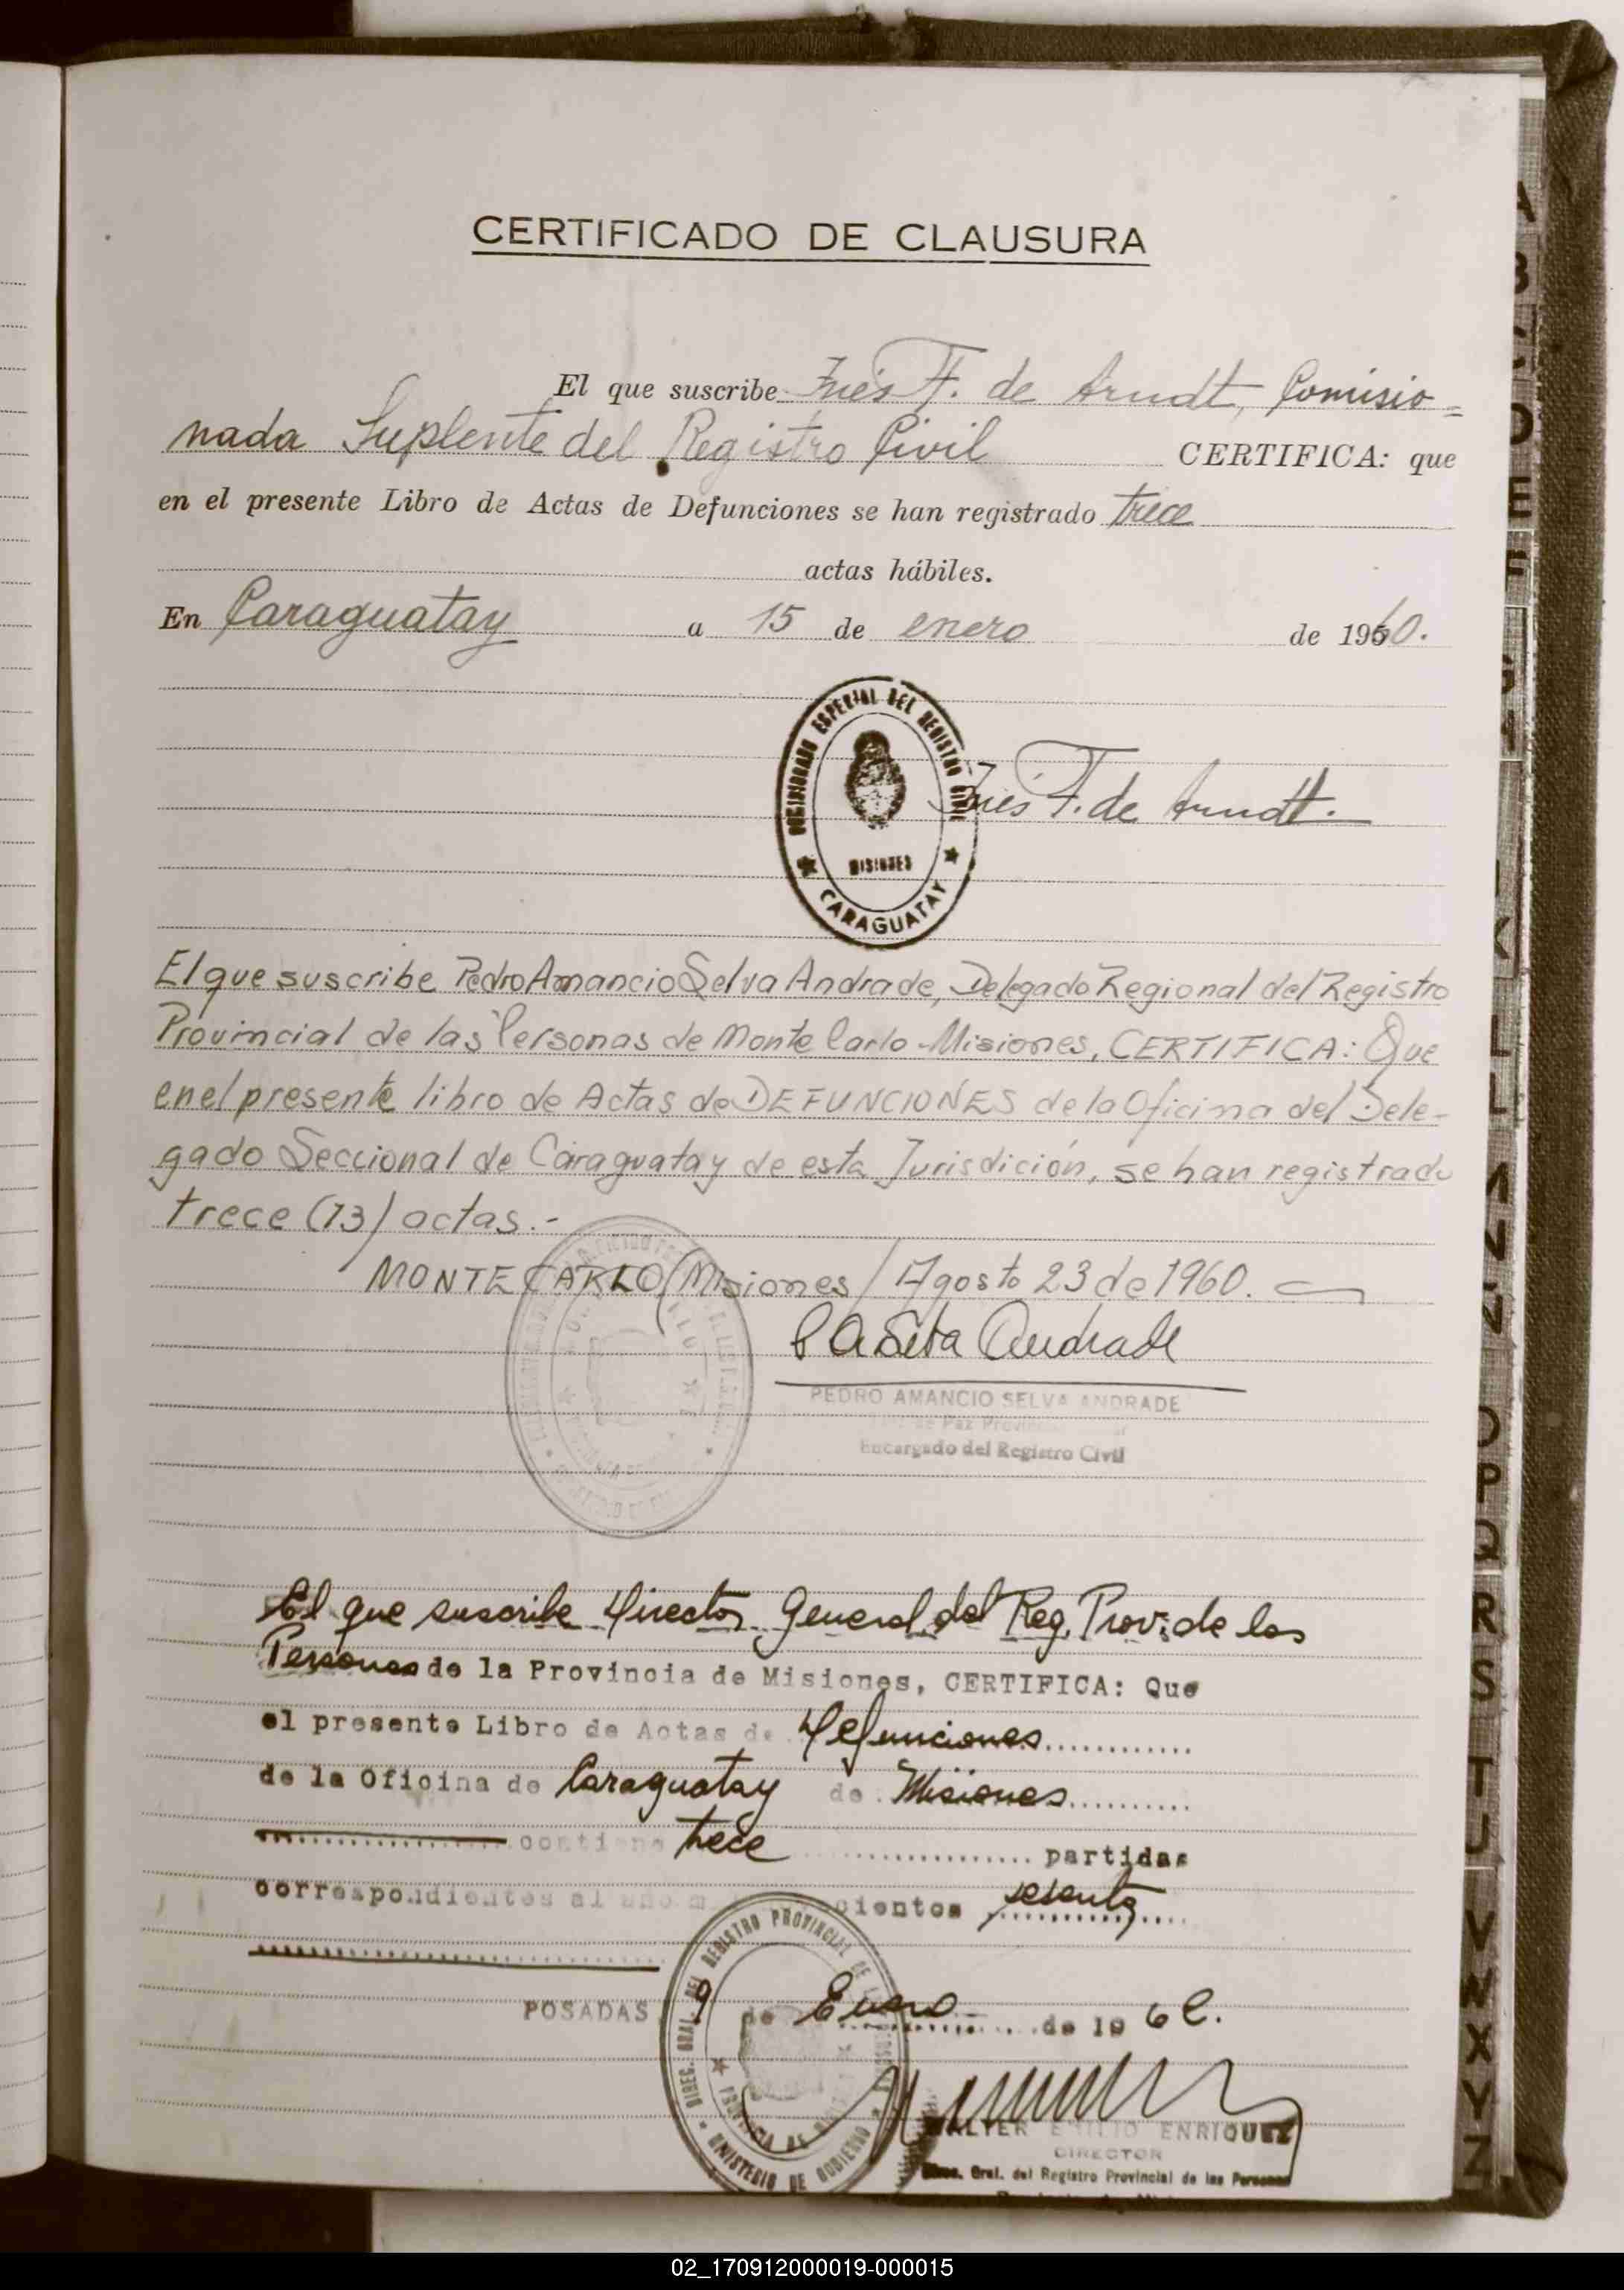 CERTIFICADO DE CLAUSURA
El que suscribe Inés F. de Arndt, Comisio=
nada Suplente del Registro Civil CERTIFICA: que
en el presente Libro de Actas de Defunciones se han registrado trece
actas hábiles.
En Caraguatay a 15 de enero de 1960.
COMISIONADO ESPECIAL DEL REGISTRO CIVIL
MISIONES
CARAGUATAY
Inés F. de Arndt.
El que suscribe Pedro Amancio Selva Andrade, Delegado Regional del Registro
Provincial de las Personas de Monte Carlo-Misiones, CERTIFICA: Que
en el presente libro de Actas de DEFUNCIONES de la Oficina del Dele-
gado Seccional de Caraguatay de esta Jurisdición, se han registrado
trece (13) actas.-
MONTE CARLO (Misiones) Agosto 23 de 1960.
P A Selva Andrade
PEDRO AMANCIO SELVA ANDRADE
de Paz
Encargado del Registro Civil
El que suscribe Director General del Reg. Prov. de las
Personas de la Provincia de Misiones, CERTIFICA: Que
el presente Libro de Actas de Defunciones
de la Oficina de Caraguatay de Misiones
contiene trece partidas
correspondientes al año cientos sesenta
POSADAS 9 de Enero de 196
DIREC. GRAL. DEL REGISTRO PROVINCIAL DE
PROVINCIA DE
MINISTERIO DE GOBIERNO
WALTER EMILIO ENRIQUEZ
DIRECTOR
Direc. Gral. del Registro Provincial de las Personas
A
B
C
D
E
F
G
I
K
L
L
M
N
Ñ
O
P
Q
R
S
T
U
V
W
X
Y
Z
02_170912000019-000015